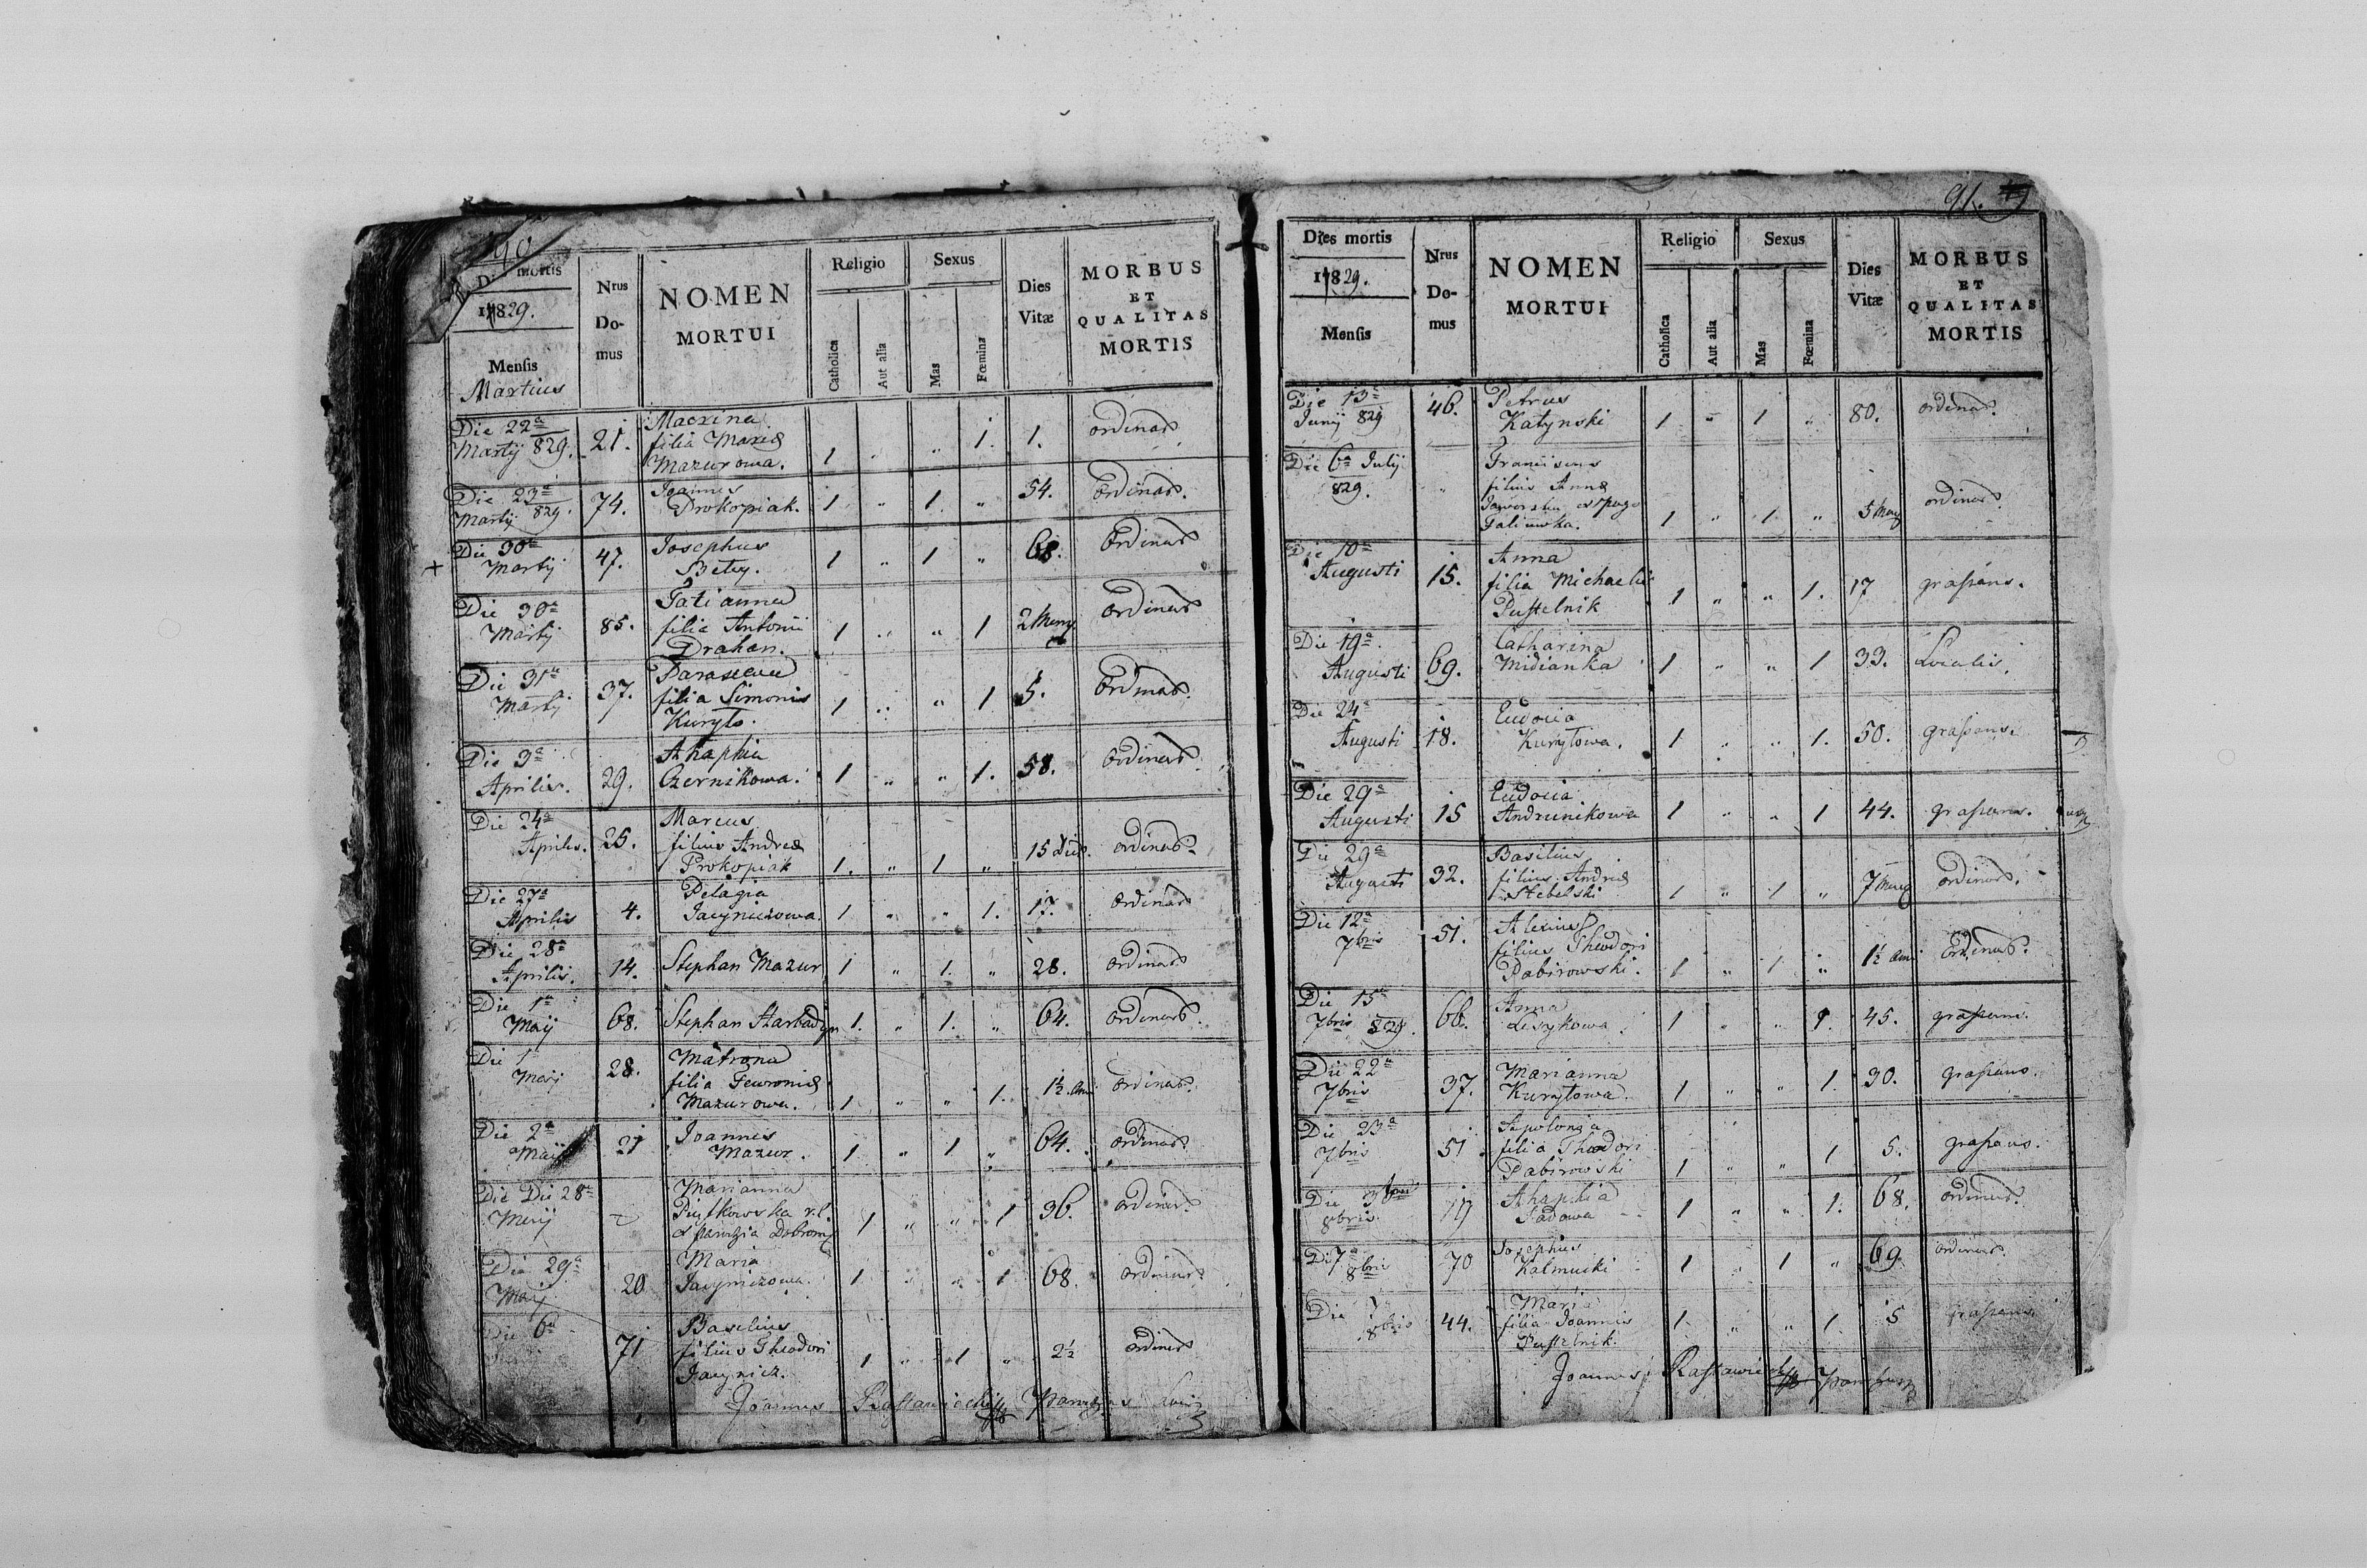 90
Dies mortis
1829.
Mensis
Martius
Nrus Do-mus
NOMEN MORTUI
Religio
Catholica
Aut alia
Sexus
Mas
Fœmina
Dies Vitæ
MORBUS ET QUALITAS MORTIS
Die 22a Martij 829. 21. Macrina 1. 1. ordinar
filia Mariæ
Mazurowa. 1 „ „
Die 23a Martij 829. 74. Joannes 54. Ordinar.
Prokopiak. 1 „ 1. „
+ Die 30a Martij 47. Josephus 68. Ordinar
Bety. 1 „ 1 „
Die 30a Martij 85. Tatianna 2 Mens Ordinar
filia Antonii 1 „ „ 1
Drahan.
Die 31a Martij 37. Parasceva 5. Ordinar.
filia Simonis 1 „ „ 1
Kuryło.
Die 3a Aprilis. 29. Ahaphia 58. Ordinar
Czernikowa. 1 „ „ 1.
Die 24a Aprilis. 25. Marcus 15 Dies. ordinar
filius Andreæ
Prokopiak 1. „ 1 „
Die 27a Aprilis 4. Pelagia 17. Ordinar
1 „ „ 1.
Die 28a Aprilis. 14. Stephan Mazur 1 „ 1. „ 28. ordinar
Die 1a Maij 68. Stephan 1. „ 1. „ 64. Ordinar.
Die 1 Maij 28. Matrona 1½ ordinar.
filia Fewroniæ
Mazurowa. 1 „ „ 1.
Die 2a Maij 21 Joannes 64. ordinar
Mazur. 1 „ 1 „
Die Die 28a Maij Marianna 36. ordinar.
1 „ „ 1
Die 29a Maij 20 Maria 68. ordinar.
1 „ „ 1
Die 6a 71 Basilius 2½ ordinar
filius Theodori 1 „ 1 „
Jacynicz.
Joannes
91.
Dies mortis
1829.
Mensis
Nrus Do-mus
NOMEN MORTUI
Religio
Catholica
Aut alia
Sexus
Mas
Fœmina
Dies Vitæ
MORBUS ET QUALITAS MORTIS
Die 13a Junij 829 46. Petrus 80. ordinar.
Katynski 1 „ 1 „
Die 6a Julij 829. Franciscus ordinar.
filius Annæ
ex pago
1 „ 1 „ 5
Die 10a Augusti 15. Anna 17 graßans.
filia Michaelis 1 „ „ 1.
Pustelnik
Die 19a Augusti 69. Catharina 33. Localis.
Midianka 1 „ „ 1
Die 24a Augusti 18. Eudocia 50. graßans.
Kuryłowa. 1 „ „ 1.
Die 29a Augusti 15 Eudocia 44. graßans.
Andrunikowa 1 „ „ 1
Die 29a Augusti 32. Basilius ordinar.
filius Andreæ 7 Mens
Stebelski 1 „ 1 „
Die 12a 7bris 51. Alexius 1½ Ordinar.
filius Theodori
Pabirowski. 1 „ 1 „
Die 15a 7bris 829. 66. Anna 45. graßans.
Liszykowa. 1 „ „ 1.
Die 22a 7bris 37. Marianna 30. graßans.
Kuryłowa. 1 „ „ 1.
Die 23a 7bris 51 Apolonia 5. graßans.
filia Theodori
Pabirowski 1 „ „ 1
Die 3 8bris. 19 Ahaphia 68. ordinar.
Sadowa 1 „ „ 1.
Di 7a 8bris 70 Josephus 69. ordinar.
Kalmucki 1 „ 1 „
Die 8bris 44. Maria 5 graßans.
filia Joannis 1 „ „ 1.
Pustelnik.
Joannes